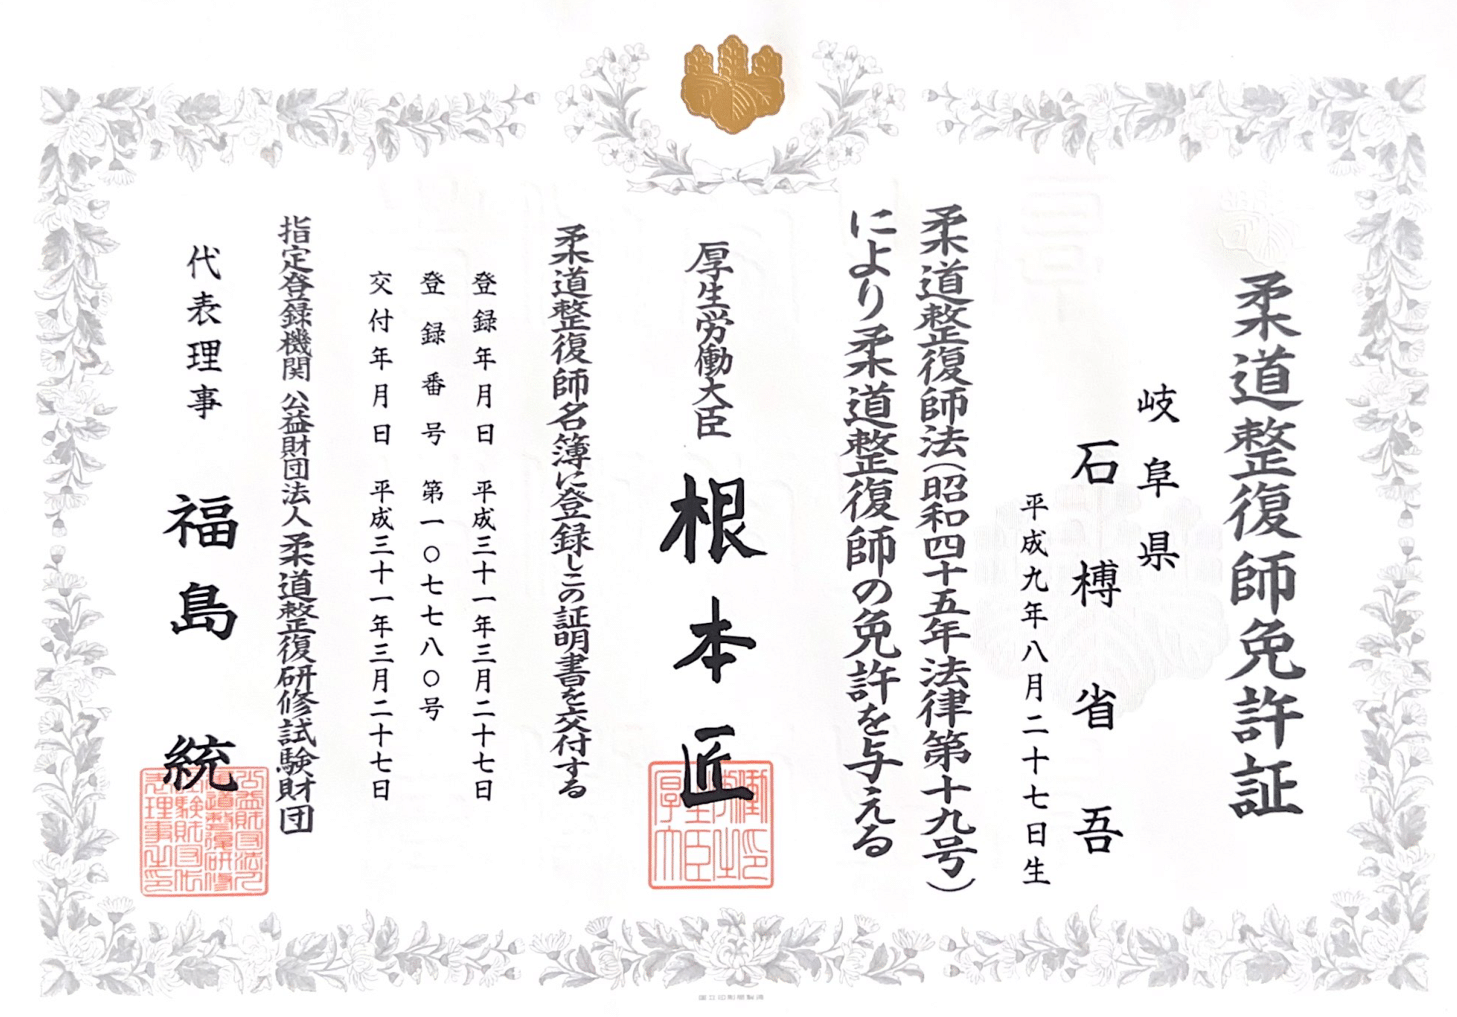 柔道整復師免許証
岐阜県
石榑省吾
平成九年八月二十七日生
柔道整復師法(昭和四十五年法律第十九号)
により柔道整復師の免許を与える
厚生労働大臣 根本匠
柔道整復師名簿に登録しこの証明書を交付する
登録年月日 平成三十一年三月二十七日
登録番号 第一〇七七八〇号
交付年月日 平成三十一年三月二十七日
指定登録機関 公益財団法人柔道整復研修試験財団
代表理事 福島統